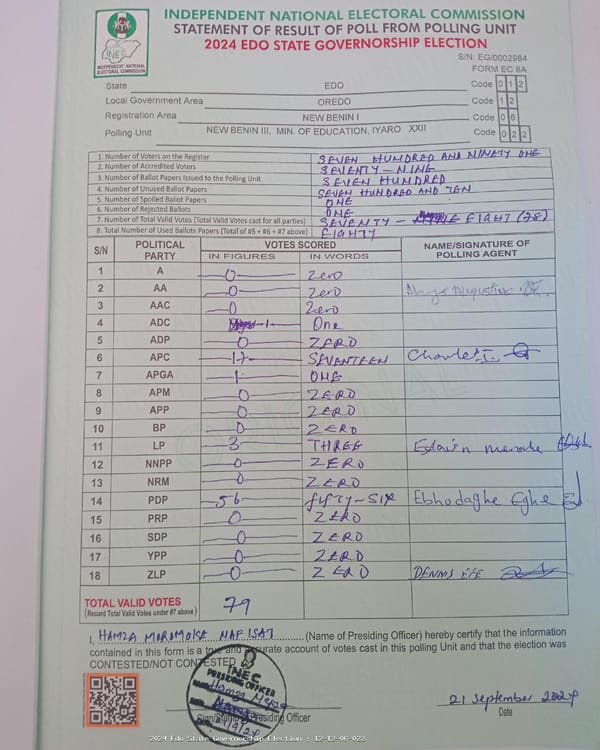 INDEPENDENT NATIONAL ELECTORAL COMMISSION
STATEMENT OF RESULT OF POLL FROM POLLING UNIT
2024 EDO STATE GOVERNORSHIP ELECTION
INEC
INDEPENDENT NATIONAL ELECTORAL COMMISSION
S/N: EG/0002984
FORM EC 8A
State EDO Code 0 1 2
Local Government Area OREDO Code 1 2
Registration Area NEW BENIN I Code 0 6
Polling Unit NEW BENIN III, MIN. OF EDUCATION, IYARO XXII Code 0 2 2
1. Number of Voters on the Register SEVEN HUNDRED AND NINETY ONE
2. Number of Accredited Voters SEVENTY-NINE
3. Number of Ballot Papers Issued to the Polling Unit SEVEN HUNDRED
4. Number of Unused Ballot Papers SEVEN HUNDRED AND TEN
5. Number of Spoiled Ballot Papers ONE
6. Number of Rejected Ballots ONE
7. Number of Total Valid Votes (Total Valid Votes cast for all parties) SEVENTY - EIGHT (78)
8. Total Number of Used Ballots Papers (Total of #5 + #6 + #7 above) EIGHTY
S/N POLITICAL PARTY VOTES SCORED NAME/SIGNATURE OF POLLING AGENT
IN FIGURES IN WORDS
1 A 0 Zero
2 AA 0 Zero
3 AAC 0 Zero
4 ADC 1 One
5 ADP 0 ZERO
6 APC 17 SEVENTEEN Charles I.
7 APGA 1 ONE
8 APM 0 ZERO
9 APP 0 ZERO
10 BP 0 ZERO
11 LP 3 THREE
12 NNPP 0 ZERO
13 NRM 0 ZERO
14 PDP 56 fifty-six Ebhodaghe Eghe
15 PRP 0 ZERO
16 SDP 0 ZERO
17 YPP 0 ZERO
18 ZLP 0 ZERO DENNIS EFE
TOTAL VALID VOTES 79
(Record Total Valid Votes under #7 above)
I, HAMZA MOROMOKE NAFISAT (Name of Presiding Officer) hereby certify that the information
contained in this form is a true and accurate account of votes cast in this polling Unit and that the election was
CONTESTED/NOT CONTESTED
INEC
PRESIDING OFFICER
Sign/Stamp of Presiding Officer
21 September 2024
Date
2024 Edo State Governorship Election : 12-12-06-022